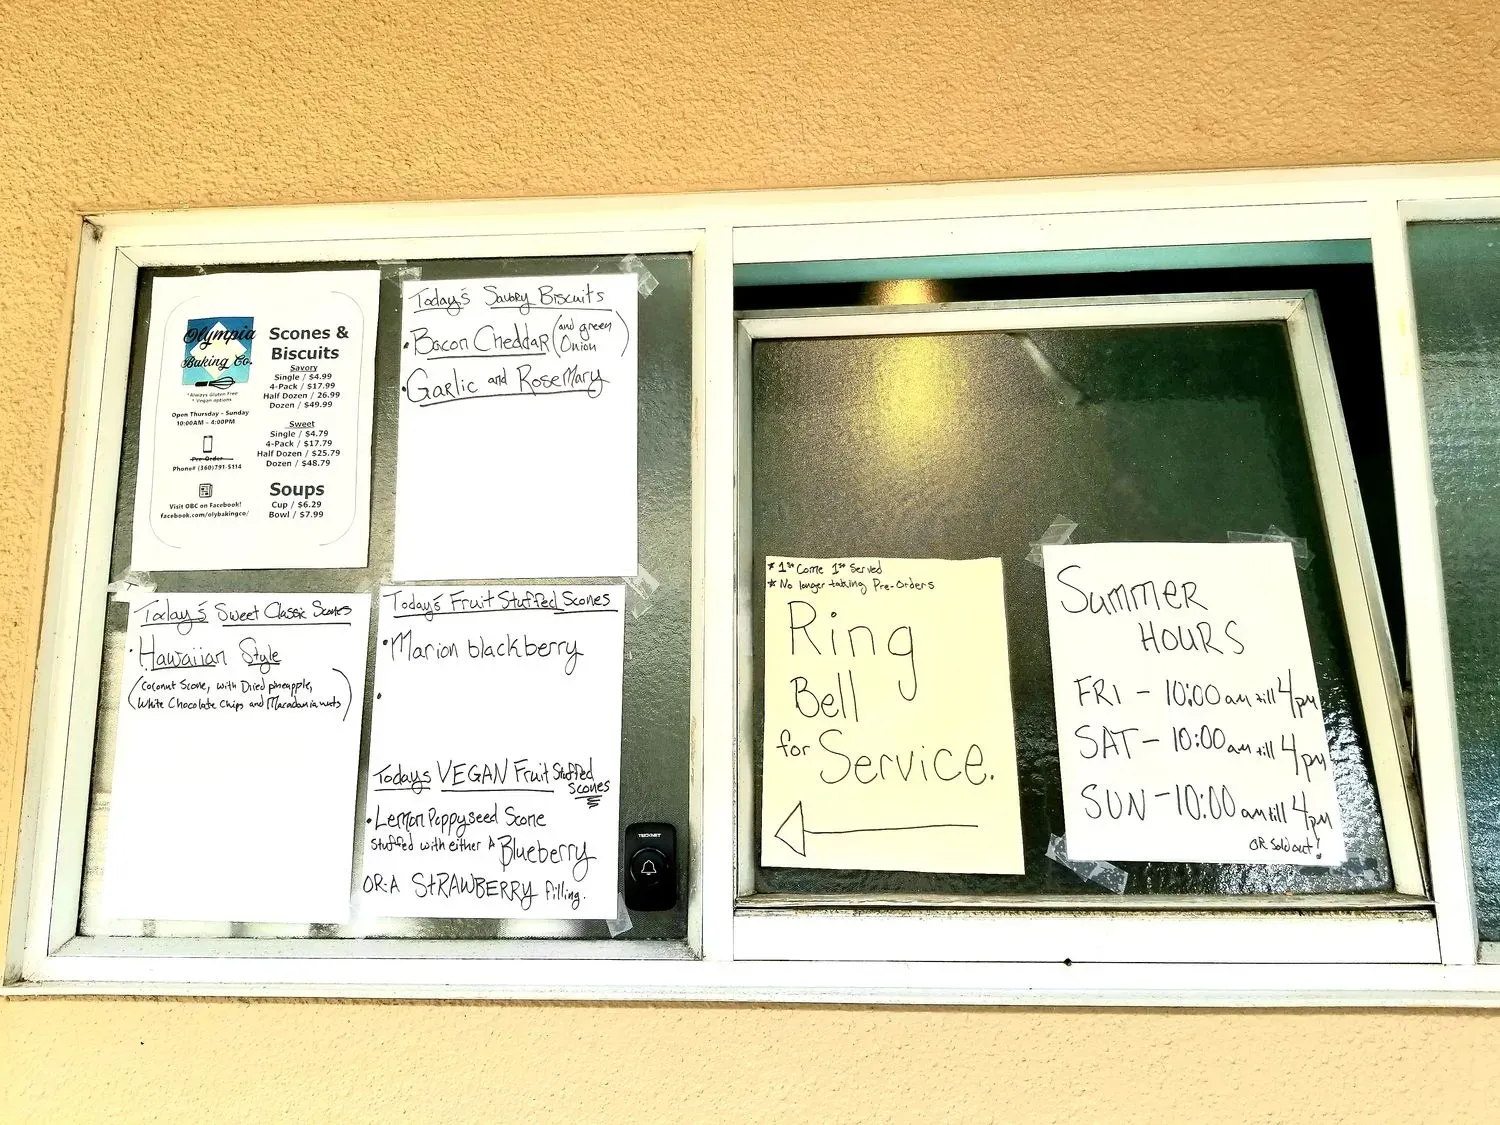 Olympia
Baking Co.
*Always Gluten Free
*Vegan options
Open Thursday - Sunday
10:00AM - 4:00PM
Pre-Order
Phone# (360)791-5114
Visit OBC on Facebook!
facebook.com/olybakingco/
Scones &
Biscuits
Savory
Single / $4.99
4-Pack / $17.99
Half Dozen / 26.99
Dozen / $49.99
Sweet
Single / $4.79
4-Pack / $17.79
Half Dozen / $25.79
Dozen / $48.79
Soups
Cup / $6.29
Bowl / $7.99
Today's Savory Biscuits
• Bacon Cheddar (and green
Onion)
• Garlic and Rosemary
Today's Sweet Classic Scones
• Hawaiian Style
(Coconut Scone, with Dried pineapple,
White Chocolate Chips and Macadamia nuts)
Today's Fruit Stuffed Scones
• Marion blackberry
•
Todays VEGAN Fruit Stuffed
Scones
• Lemon Poppyseed Scone
stuffed with either A Blueberry
OR A STRAWBERRY filling.
TECKNET
* 1st Come 1st Served
* No longer taking Pre-Orders
Ring
Bell
for Service.
Summer
HOURS
FRI - 10:00 am till 4pm
SAT - 10:00 am till 4pm
SUN - 10:00 am till 4pm
OR Sold out!